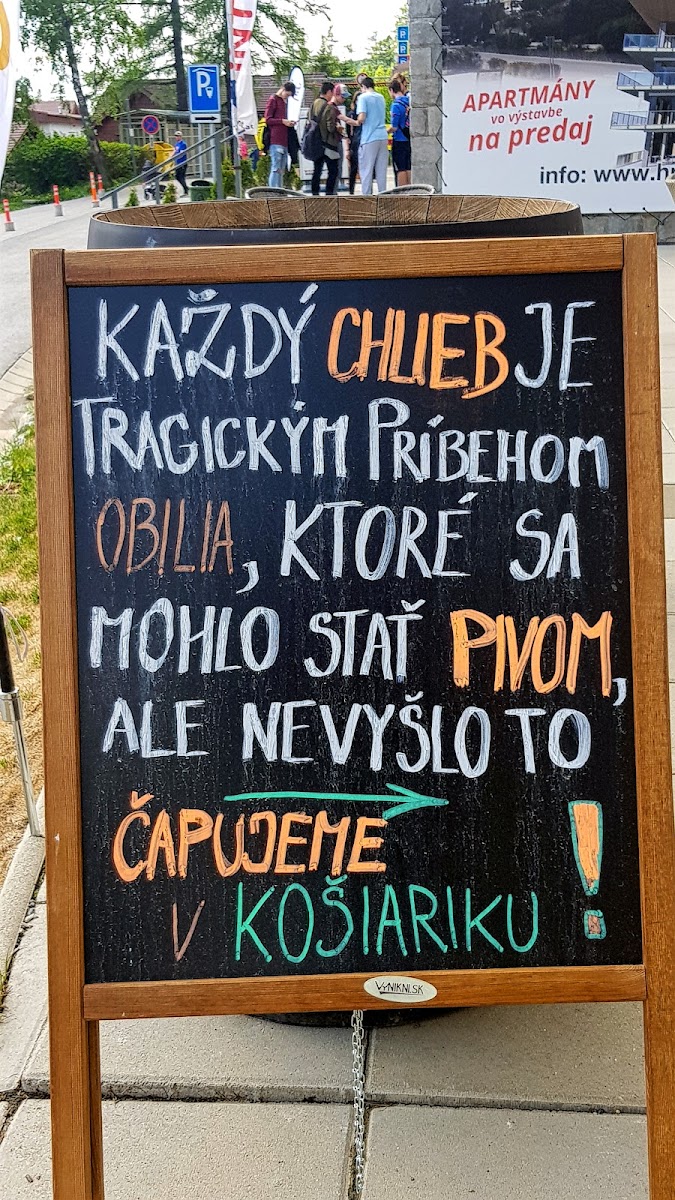 P
APARTMÁNY
vo výstavbe
na predaj
info: www.h
KAŽDÝ CHLIEB JE
TRAGICKÝM PRÍBEHOM
OBILIA, KTORÉ SA
MOHLO STAŤ PIVOM,
ALE NEVYŠLO TO
ČAPUJEME
V KOŠIARIKU!
VYNIKNI.SK